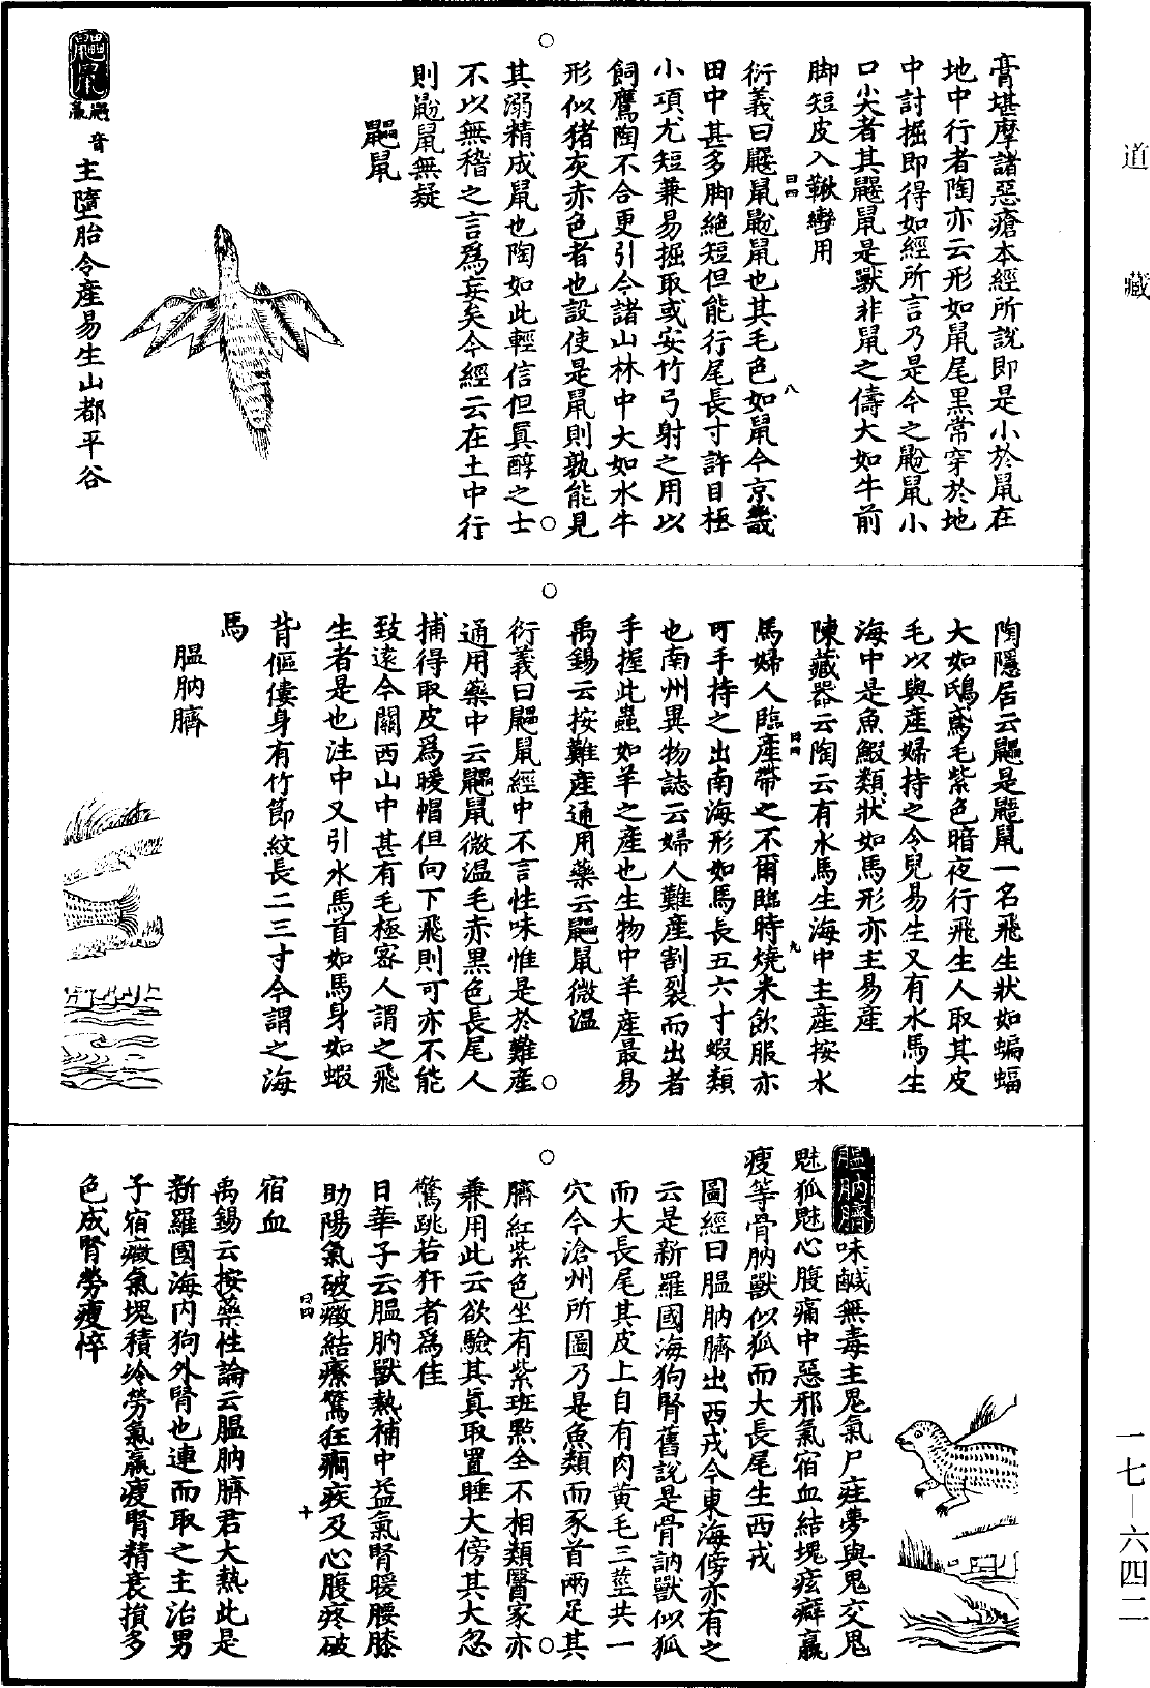 道藏
一七—六四二
膏堪摩諸惡瘡本經所說即是小於鼠在
地中行者陶亦云形如鼠尾黑常穿於地
中討掘即得如經所言乃是今之鼢鼠小
口尖者其鼴鼠是獸非鼠之儔大如牛前
脚短皮入鞦轡用
衍義曰鼴鼠鼢鼠也其毛色如鼠今京畿
田中甚多脚絕短但能行尾長寸許目極
小項尤短兼易掘取或安竹弓射之用以
飼鷹陶不合更引今諸山林中大如水牛
形似猪灰赤色者也設使是鼠則孰能見
其溺精成鼠也陶如此輕信但真醇之士
不以無稽之言爲妄矣今經云在土中行
則鼢鼠無疑
鼺鼠
鼺鼠
音
主墮胎令產易生山都平谷
陶隱居云鼺是鼯鼠一名飛生狀如蝙蝠
大如鴟鳶毛紫色暗夜行飛生人取其皮
毛以與產婦持之令兒易生又有水馬生
海中是魚鰕類狀如馬形亦主易產
陳藏器云陶云有水馬生海中主產按水
馬婦人臨產帶之不爾臨時燒末飲服亦
可手持之出南海形如馬長五六寸蝦類
也南州異物誌云婦人難產割裂而出者
手握此蟲如羊之產也生物中羊產最易
禹錫云按難產通用藥云鼺鼠微溫
衍義曰鼺鼠經中不言性味惟是於難產
通用藥中云鼺鼠微溫毛赤黑色長尾人
捕得取皮爲暖帽但向下飛則可亦不能
致遠今關西山中甚有毛極密人謂之飛
生者是也注中又引水馬首如馬身如蝦
背傴僂身有竹節紋長二三寸今謂之海
馬
膃肭臍
膃肭臍
味鹹無毒主鬼氣尸疰夢與鬼交鬼
魅狐魅心腹痛中惡邪氣宿血結塊痃癖羸
瘦等骨肭獸似狐而大長尾生西戎
圖經曰膃肭臍出西戎今東海傍亦有之
云是新羅國海狗腎舊說是骨訥獸似狐
而大長尾其皮上自有肉黄毛三莖共一
穴今滄州所圖乃是魚類而豕首兩足其
臍紅紫色坐有紫班點全不相類醫家亦
兼用此云欲驗其真取置睡犬傍其犬忽
驚跳若狂者爲佳
日華子云膃肭獸熱補中益氣腎暖腰膝
助陽氣破癥結療驚狂癇疾及心腹疼破
宿血
禹錫云按藥性論云膃肭臍君大熱此是
新羅國海内狗外腎也連而取之主治男
子宿癥氣塊積冷勞氣羸瘦腎精衰損多
色成腎勞瘦悴